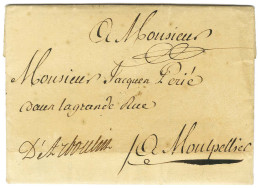 A Monsieur
Monsieur Jacques Perié
dans la grande Rue
A Montpellier